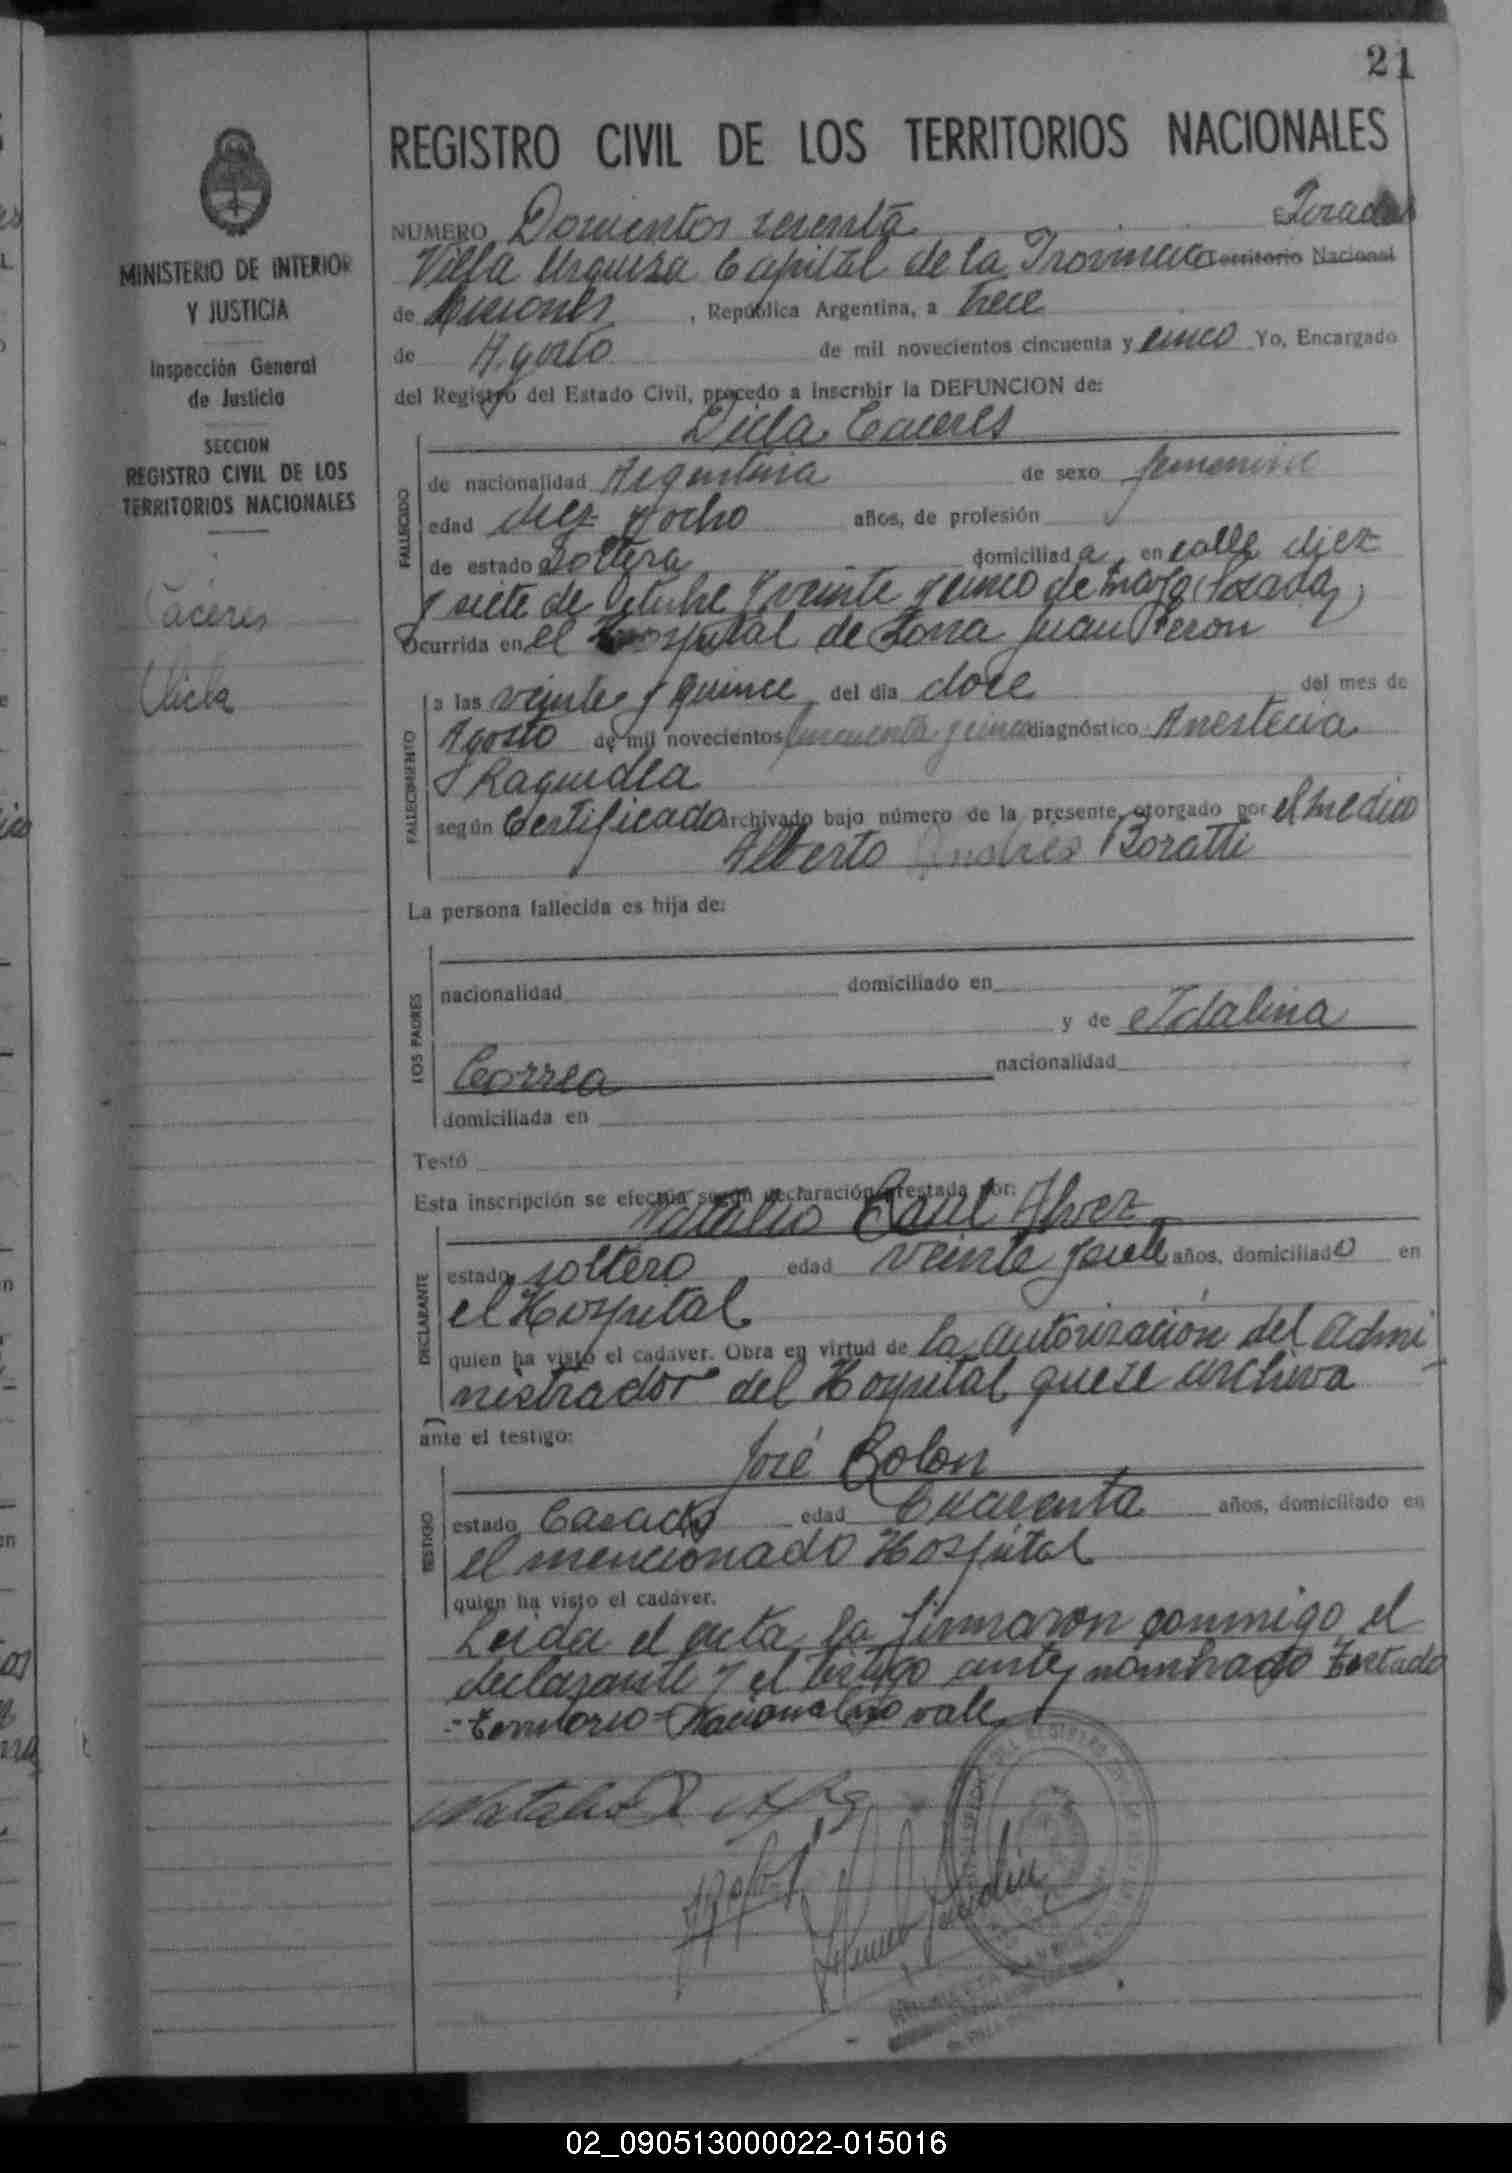 21
REGISTRO CIVIL DE LOS TERRITORIOS NACIONALES
MINISTERIO DE INTERIOR
Y JUSTICIA
Inspección General
de Justicia
SECCION
REGISTRO CIVIL DE LOS
TERRITORIOS NACIONALES
Cáceres
NUMERO Doscientos sesenta En Posadas
Villa Urquiza Capital de la Provincia Territorio Nacional
de Misiones, República Argentina, a trece
de Agosto de mil novecientos cincuenta y cinco Yo, Encargado
del Registro del Estado Civil, procedo a inscribir la DEFUNCION de:
Caceres
FALLECIDO
de nacionalidad Argentina de sexo femenino
edad diez y ocho años, de profesión
de estado soltera domiciliada en calle diez
y siete de Octubre y veinte y cinco de Mayo (Posadas)
Ocurrida en el Hospital de Zona Juan Peron
FALLECIMIENTO
a las veinte y quince del día doce del mes de
Agosto de mil novecientos cincuenta y cinco diagnóstico Anestecia
Raquidea
según Certificado archivado bajo número de la presente, otorgado por el medico
Alberto Andrés Boratti
La persona fallecida es hija de:
LOS PADRES
nacionalidad domiciliado en
y de Idalina
Correa nacionalidad
domiciliada en
Testó
Esta inscripción se efectúa según declaración prestada por:
Natalio Raul Alvez
DECLARANTE
estado soltero edad veinte y siete años, domiciliado en
el Hospital
quien ha visto el cadáver. Obra en virtud de la autorización del admi
nistrador del Hospital que se archiva
ante el testigo:
José Bolon
TESTIGO
estado Casado edad Cuarenta años, domiciliado en
el mencionado Hospital
quien ha visto el cadáver.
Leida el acta, la firmaron conmigo el
declarante y el testigo antes nombrado Testado
-Territorio-Nacional no vale
02_090513000022-015016